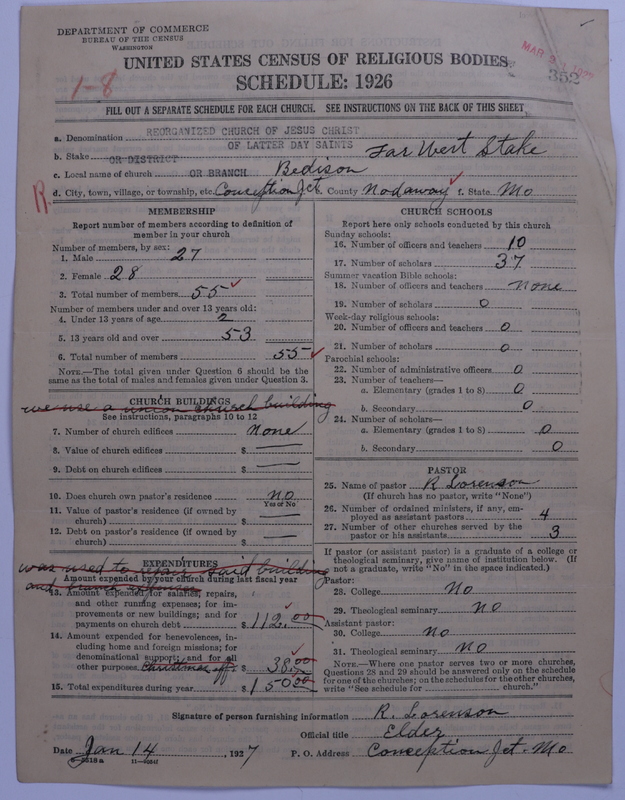 DEPARTMENT OF COMMERCE
BUREAU OF THE CENSUS
WASHINGTON
UNITED STATES CENSUS OF RELIGIOUS BODIES
SCHEDULE: 1926
MAR 2
352
1-8
FILL OUT A SEPARATE SCHEDULE FOR EACH CHURCH. SEE INSTRUCTIONS ON THE BACK OF THIS SHEET
a. Denomination REORGANIZED CHURCH OF JESUS CHRIST
OF LATTER DAY SAINTS
b. Stake OR DISTRICT Far West Stake
c. Local name of church OR BRANCH Bedison
R.
d. City, town, village, or township, etc. Conception Jct e. County Nodaway f. State Mo
MEMBERSHIP
Report number of members according to definition of
member in your church
Number of members, by sex:
1. Male 27
2. Female 28
3. Total number of members 55
Number of members under and over 13 years old:
4. Under 13 years of age 2
5. 13 years old and over 53
6. Total number of members 55
NOTE.—The total given under Question 6 should be
the same as the total of males and females given under Question 3.
CHURCH BUILDINGS
we use a union church building
See instructions, paragraphs 10 to 12
7. Number of church edifices none
8. Value of church edifices $ —
9. Debt on church edifices $ —
10. Does church own pastor's residence no
Yes or No
11. Value of pastor's residence (if owned by
church) $ —
12. Debt on pastor's residence (if owned by
church) $ —
was used to repair said building
EXPENDITURES
Amount expended by your church during last fiscal year
and branch expenses
13. Amount expended for salaries, repairs,
and other running expenses; for im-
provements or new buildings; and for
payments on church debt $ 112.00
14. Amount expended for benevolences, in-
cluding home and foreign missions; for
denominational support; and for all
other purposes. Christmas off. $ 38.00
15. Total expenditures during year $ 150.00
CHURCH SCHOOLS
Report here only schools conducted by this church
Sunday schools:
16. Number of officers and teachers 10
17. Number of scholars 37
Summer vacation Bible schools:
18. Number of officers and teachers none
19. Number of scholars 0
Week-day religious schools:
20. Number of officers and teachers 0
21. Number of scholars 0
Parochial schools:
22. Number of administrative officers 0
23. Number of teachers—
a. Elementary (grades 1 to 8) 0
b. Secondary 0
24. Number of scholars—
a. Elementary (grades 1 to 8) 0
b. Secondary 0
PASTOR
25. Name of pastor R Lorenson
(If church has no pastor, write "None")
26. Number of ordained ministers, if any, em-
ployed as assistant pastors 4
27. Number of other churches served by the
pastor or his assistants 3
If pastor (or assistant pastor) is a graduate of a college or
theological seminary, give name of institution below. (If
not a graduate, write "No" in the space indicated.)
Pastor:
28. College No
29. Theological seminary No
Assistant pastor:
30. College No
31. Theological seminary No
NOTE.—Where one pastor serves two or more churches,
Questions 28 and 29 should be answered only on the schedule
for one of the churches; on the schedules for the other churches,
write "See schedule for church."
Signature of person furnishing information R. Lorenson
Official title Elder
Date Jan 14, 1927 P. O. Address Conception Jct. Mo
11—9254f